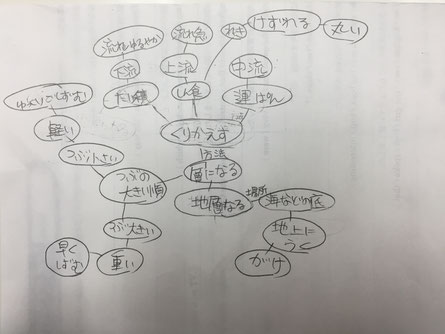 流れゆるやか
流れ急
れき
けずれる
丸い
下流
上流
中流
たい積
しん食
運ぱん
ゆっくりしずむ
軽い
つぶ小さい
くりかえす
方法
層になる
つぶの
大きい順
地層なる
場所
海などの底
つぶ大きい
地上に
うく
早く
しずむ
重い
がけ